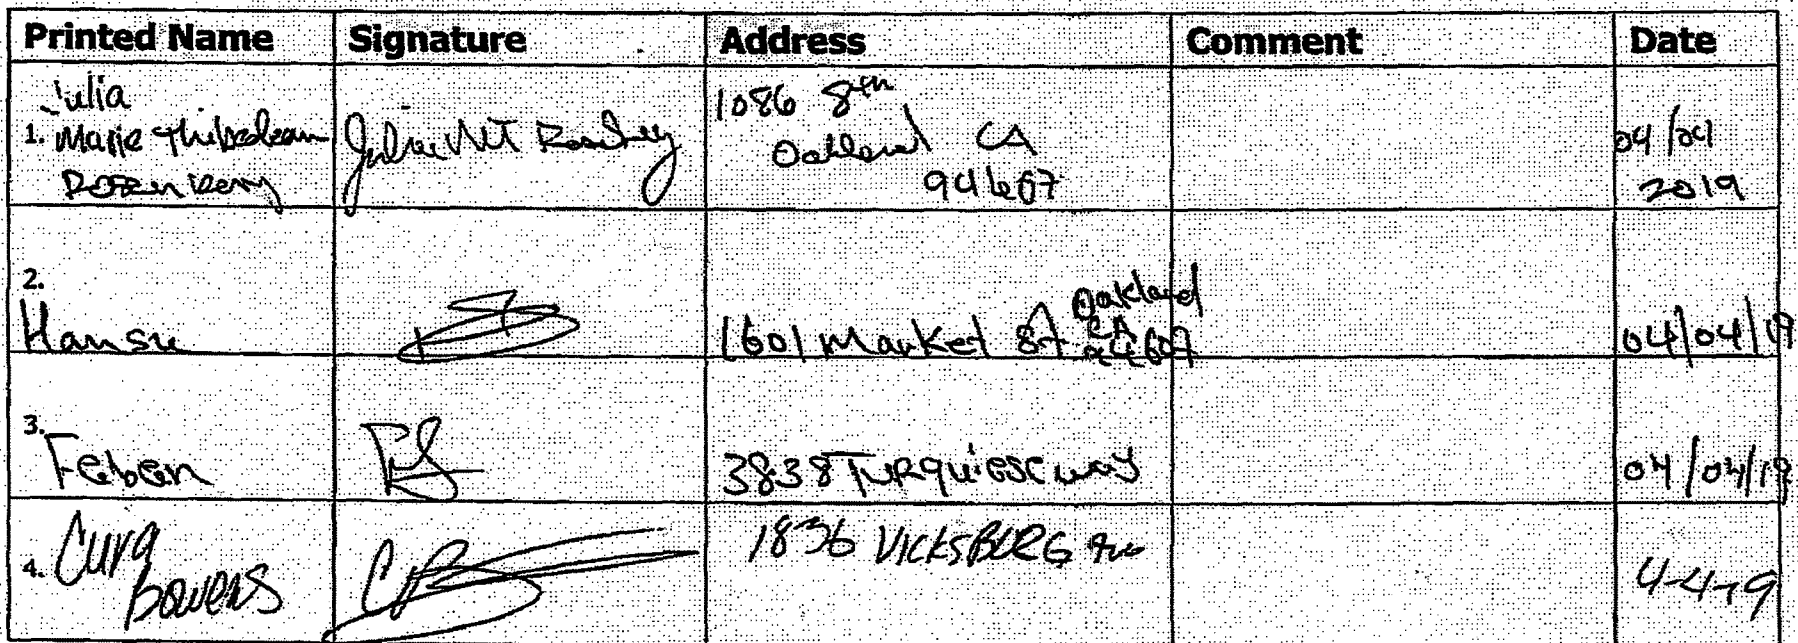 Printed Name Signature Address Comment Date
Julia
1. Marie Thibodeau
Rosenberg
1086 8th
Oakland CA
94607
04/04
2019
2.
Hansu
1601 Market St Oakland
CA
94607
04/04/19
3.
Feben
3838 Turquiese way
04/04/19
4. Curg
Bowens
1836 VICKSBURG Ave
4-4-19